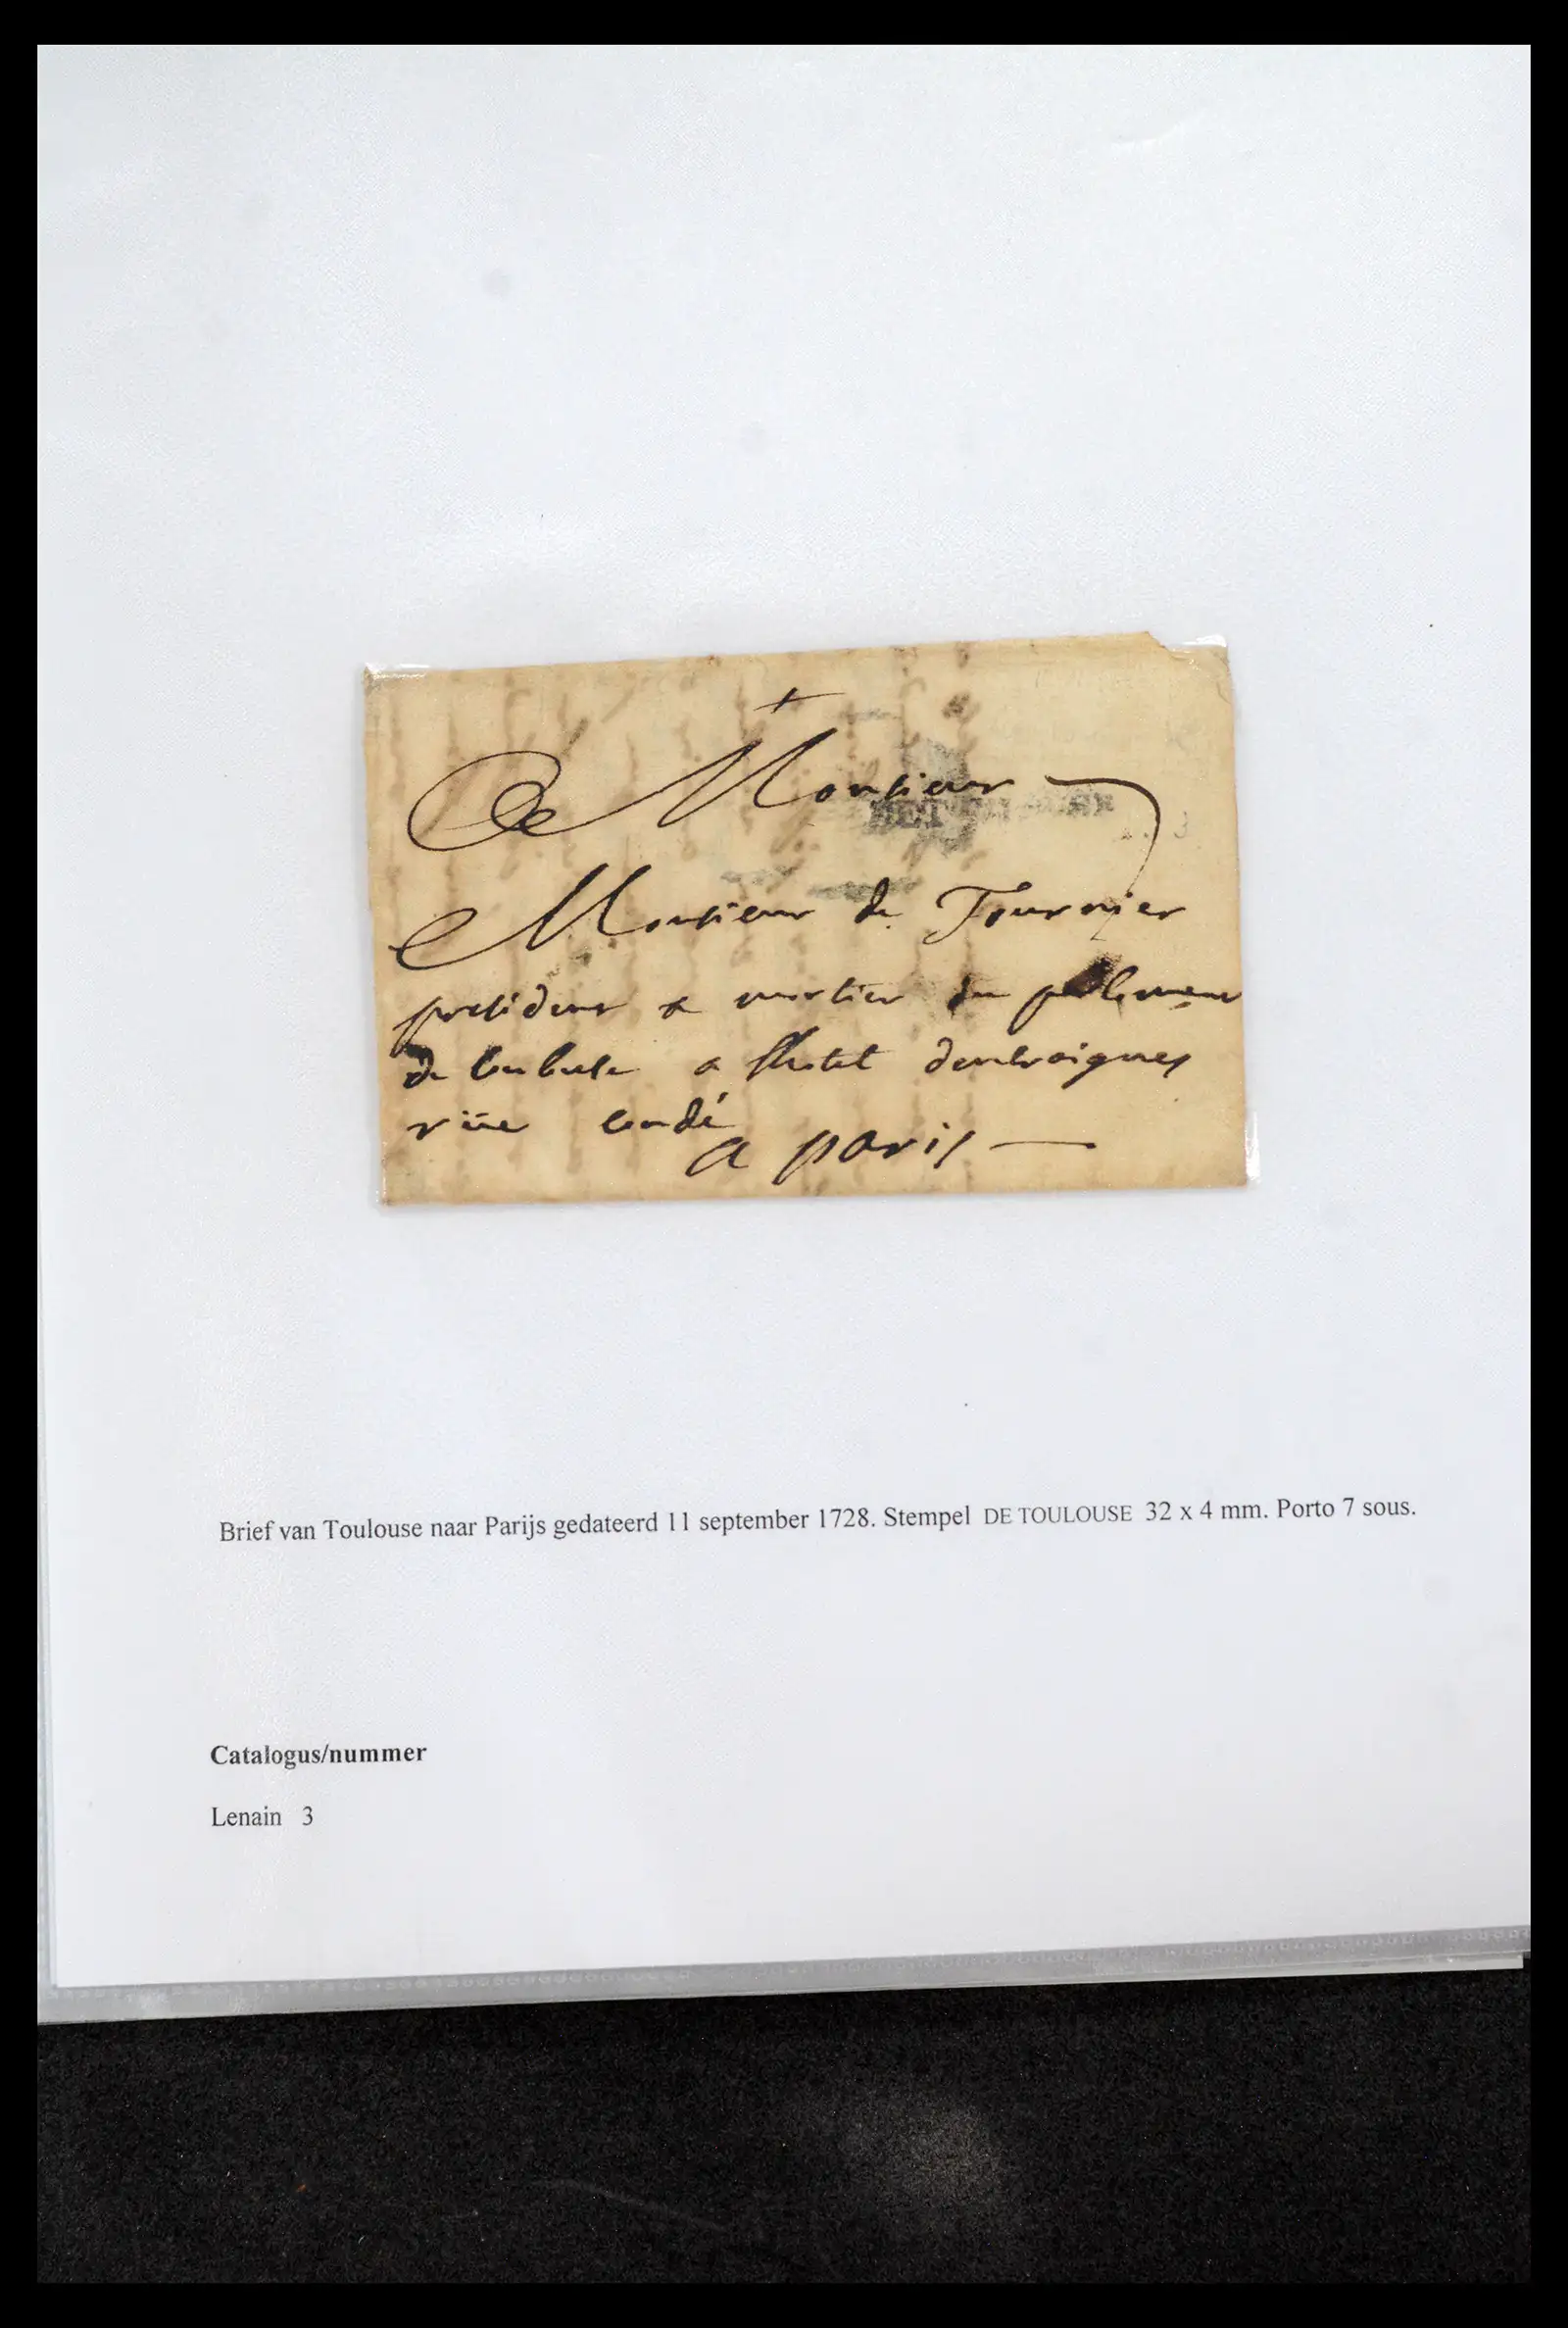 A Monsieur
Monsieur de Tournier
president a mortier du parlement
de toulouse a lhotel dentraigues
rüe condé
a paris
Brief van Toulouse naar Parijs gedateerd 11 september 1728. Stempel DE TOULOUSE 32 x 4 mm. Porto 7 sous.
Catalogus/nummer
Lenain 3